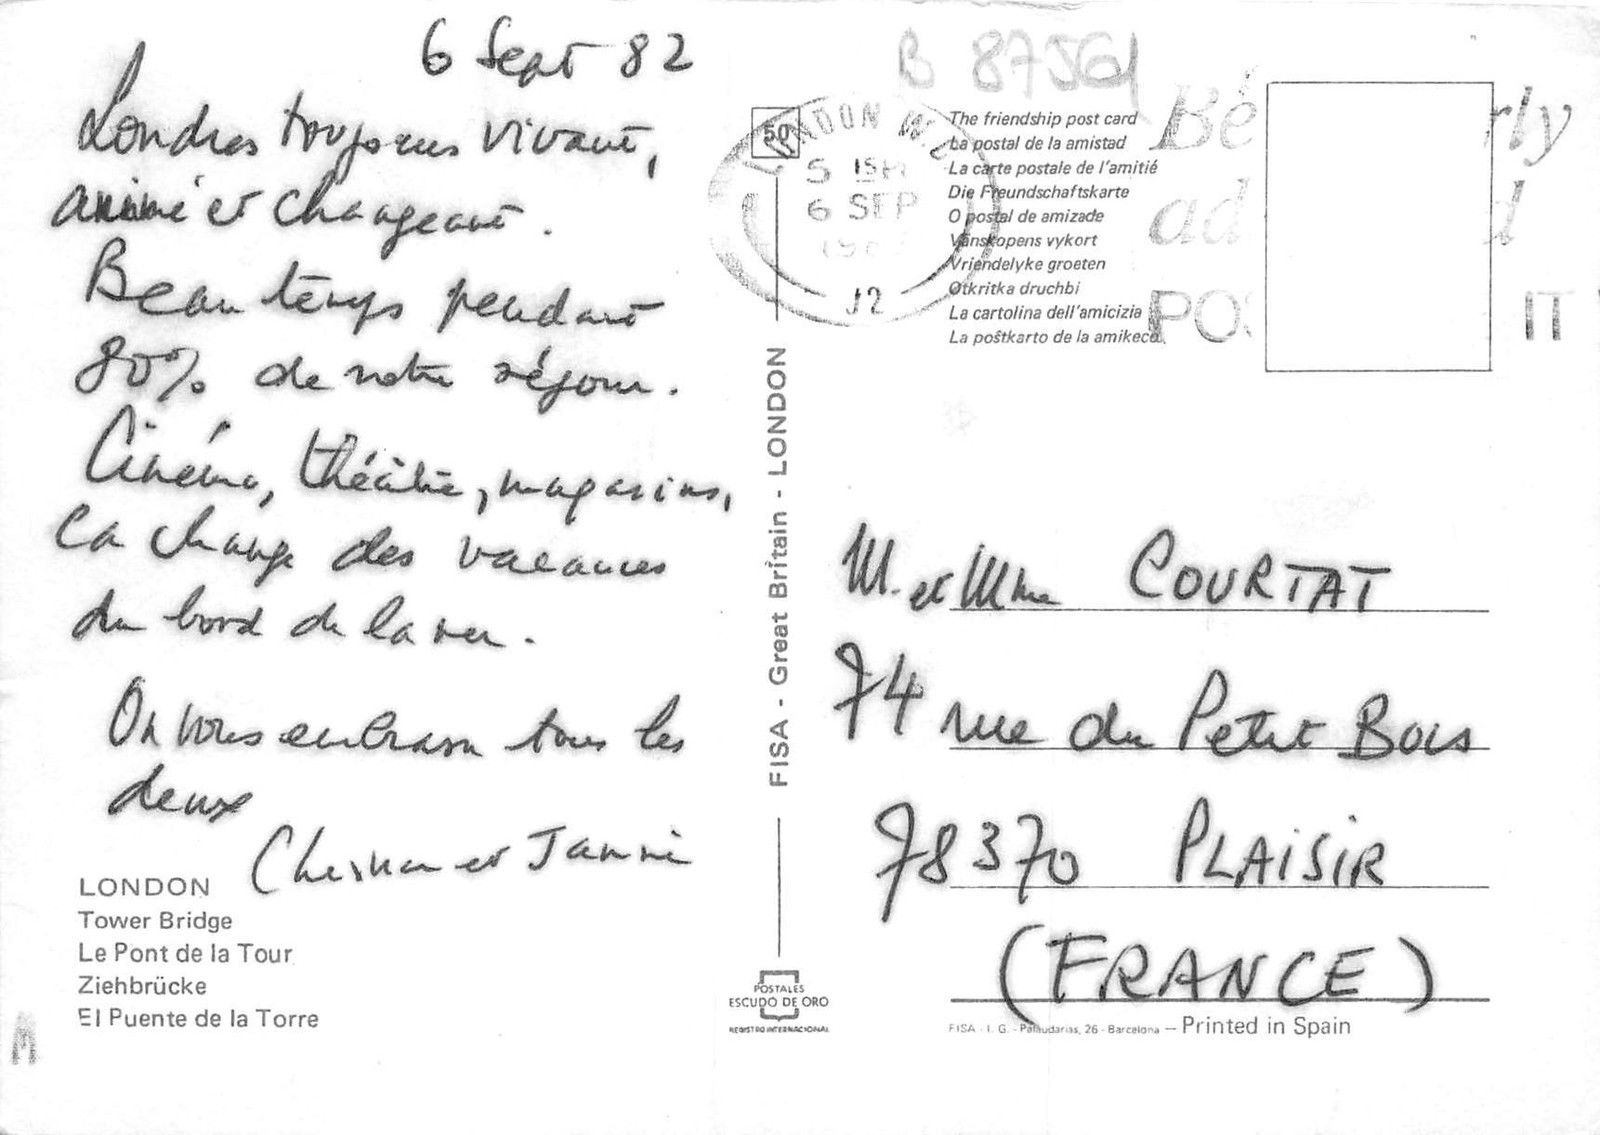 6 Sept 82
Londres toujours vivant,
animé et changeant.
Beau temps pendant
80% de notre séjour.
Cinéma, théâtre, magasins,
ça change des vacances
du bord de la mer.
On vous embrasse tous les
deux
et
LONDON
Tower Bridge
Le Pont de la Tour
Ziehbrücke
El Puente de la Torre
50
FISA - Great Britain - LONDON
POSTALES
ESCUDO DE ORO
REGISTRO INTERNACIONAL
B 87561
LONDON W.C
6 SEP
12
The friendship post card
La postal de la amistad
La carte postale de l'amitié
Die Freundschaftskarte
O postal de amizade
Vänskopens vykort
Vriendelyke groeten
Otkritka druchbi
La cartolina dell'amicizia
La poŝtkarto de la amikeco
M. et Mme COURTAT
74 rue du Petit Bois
78370 PLAISIR
(FRANCE)
FISA - I. G. - Palaudarias, 26 - Barcelona — Printed in Spain
M